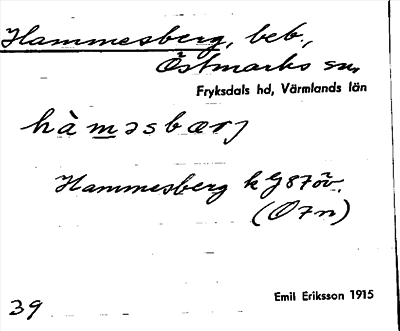 Hammesberg, beb.,
Östmarks sn,
Fryksdals hd, Värmlands län
hàməsbærj
Hammesberg k G 87 öv.
(Ö 7 n)
Emil Eriksson 1915
39